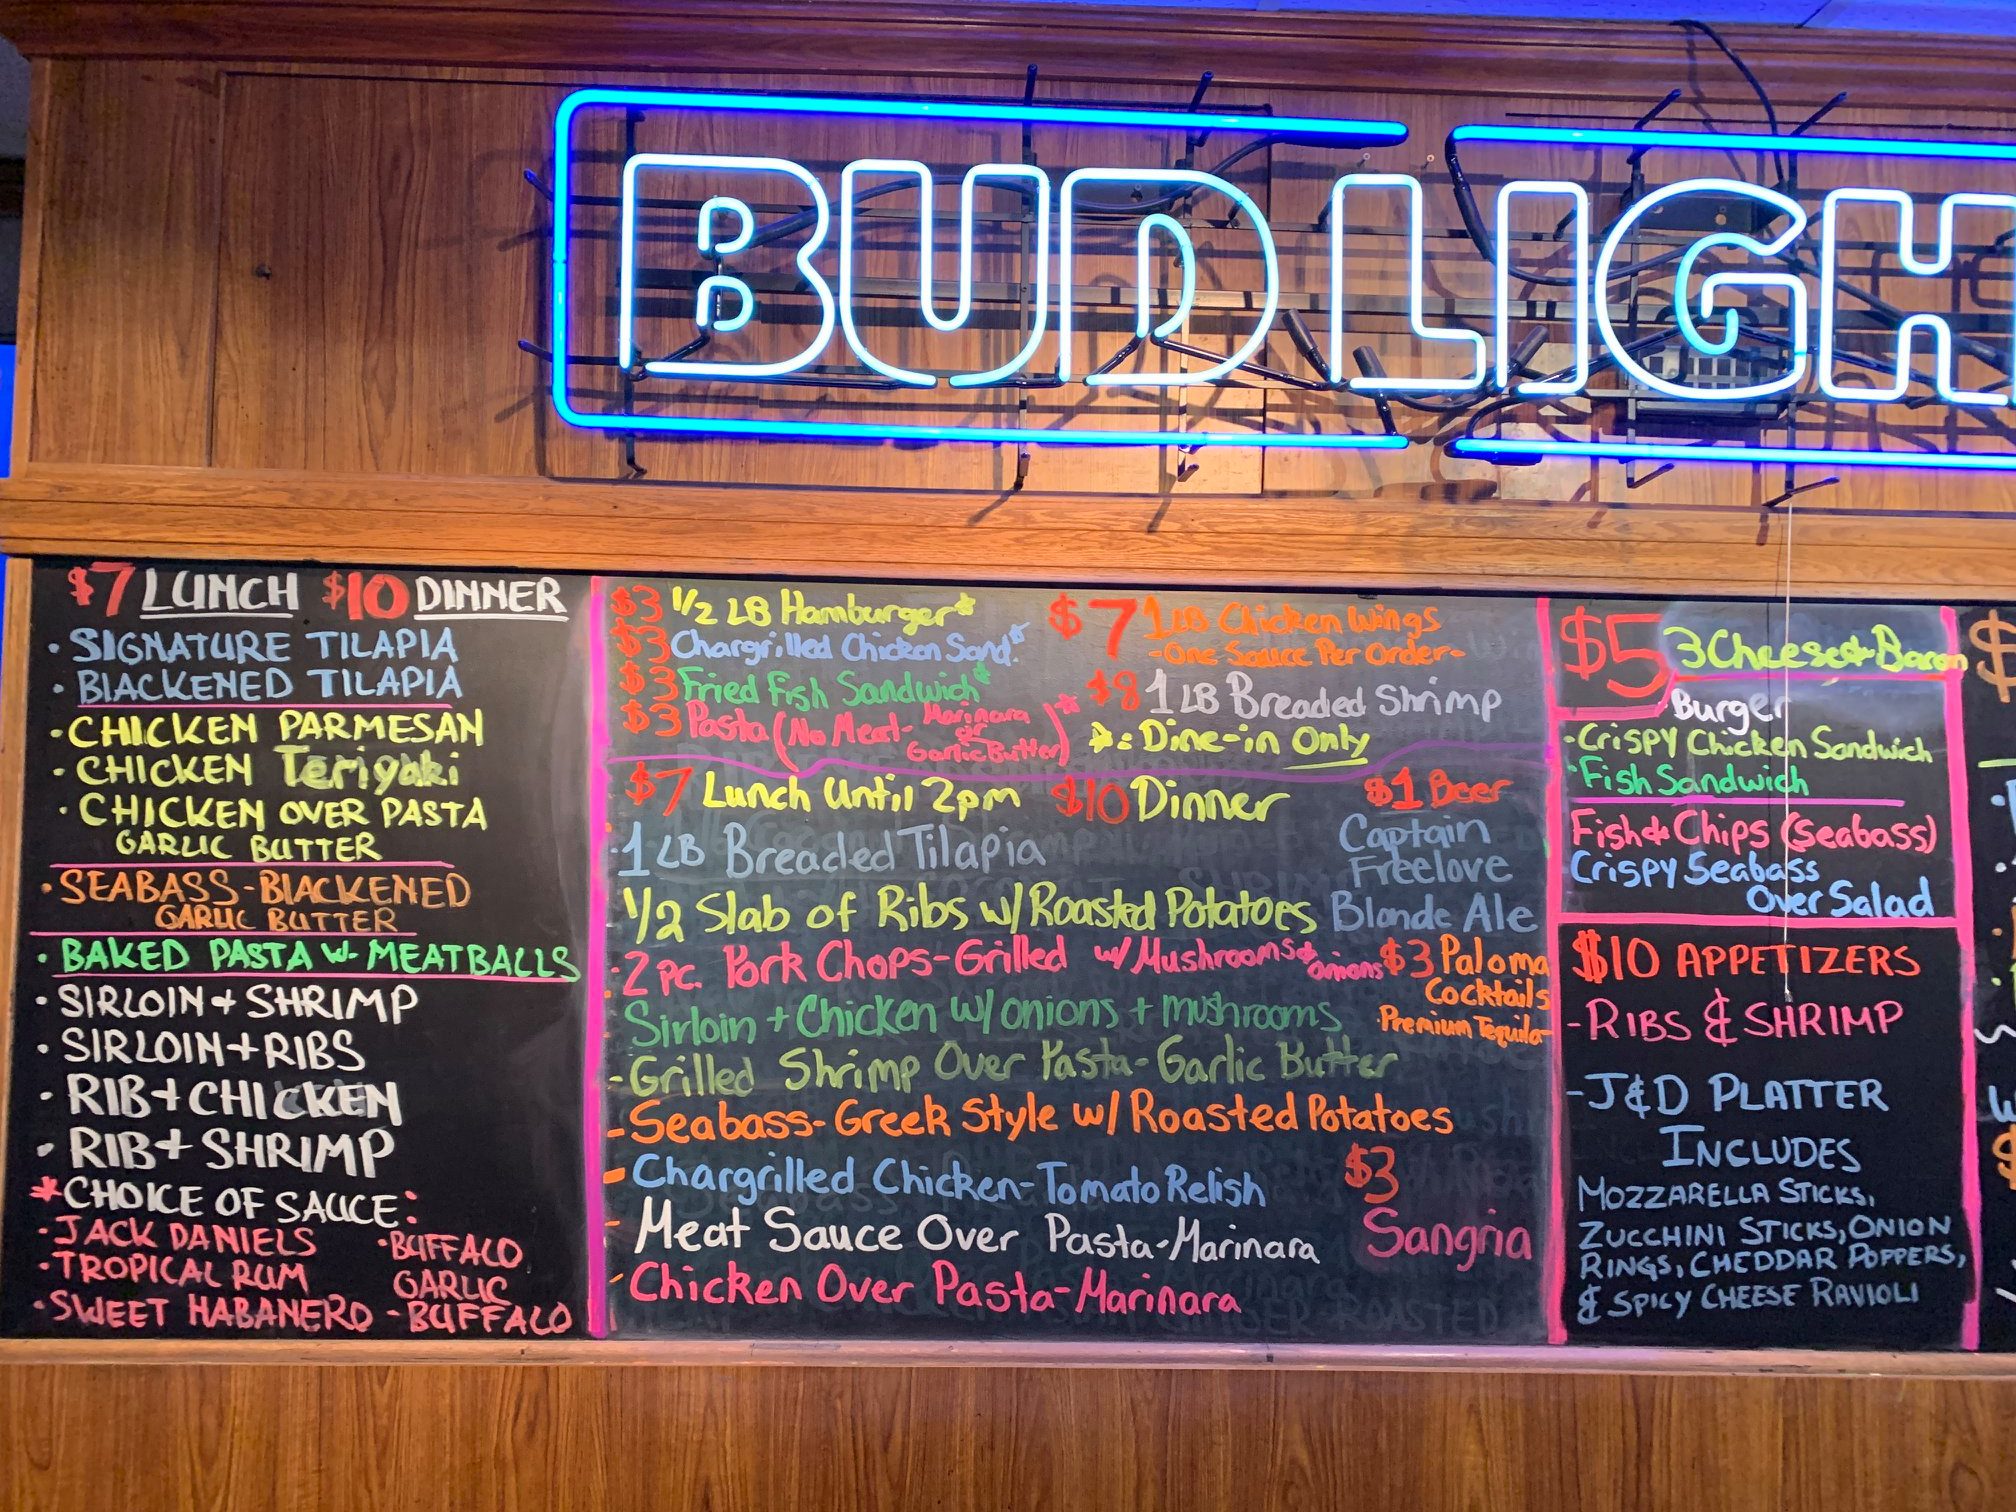 BUD LIGH
$7 LUNCH $10 DINNER
• SIGNATURE TILAPIA
• BLACKENED TILAPIA
• CHICKEN PARMESAN
• CHICKEN Teriyaki
• CHICKEN OVER PASTA
GARLIC BUTTER
• SEABASS - BLACKENED
GARLIC BUTTER
• BAKED PASTA W- MEATBALLS
• SIRLOIN + SHRIMP
• SIRLOIN + RIBS
• RIB + CHICKEN
• RIB + SHRIMP
*CHOICE OF SAUCE:
• JACK DANIELS
• TROPICAL RUM
• SWEET HABANERO
• BUFFALO
GARLIC
- BUFFALO
$3 1/2 LB Hamburger*
$3 Chargrilled Chicken Sand.*
$3 Fried Fish Sandwich*
$3 Pasta (No Meat- Marinara
or
Garlic Butter)*
$7 1LB Chicken Wings
-One Sauce Per Order-
$8 1 LB Breaded Shrimp
*= Dine-in Only
$7 Lunch Until 2pm $10 Dinner
·1 LB Breaded Tilapia
1/2 Slab of Ribs w/ Roasted Potatoes
·2 pc. Pork Chops-Grilled w/ Mushrooms & onions
Sirloin + Chicken w/ onions + mushrooms
-Grilled Shrimp Over Pasta-Garlic Butter
-Seabass-Greek Style w/ Roasted Potatoes
-Chargrilled Chicken-Tomato Relish
-Meat Sauce Over Pasta-Marinara
-Chicken Over Pasta-Marinara
$1 Beer
Captain
Freelove
Blonde Ale
$3 Paloma
Cocktails
-Premium Tequila-
$3
Sangria
$5 3 Cheese & Bacon
Burger
-Crispy Chicken Sandwich
·Fish Sandwich
Fish & Chips (Seabass)
Crispy Seabass
Over Salad
$10 APPETIZERS
-RIBS & SHRIMP
-J&D PLATTER
INCLUDES
MOZZARELLA STICKS,
ZUCCHINI STICKS, ONION
RINGS, CHEDDAR POPPERS,
& SPICY CHEESE RAVIOLI